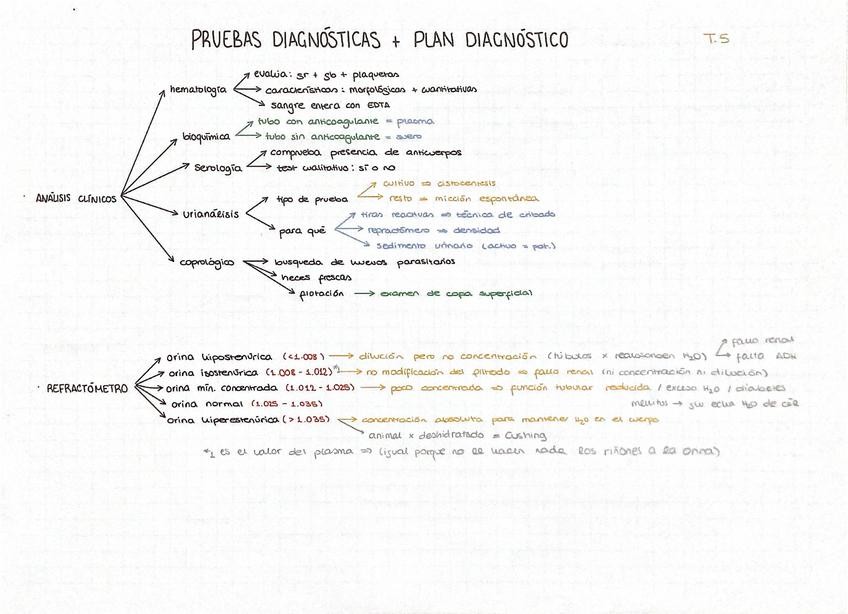 PRUEBAS DIAGNÓSTICAS + PLAN DIAGNÓSTICO
T.5
ANÁLISIS CLÍNICOS
hematología
evalúa: gr + gb + plaquetas
características: morfológicas + cuantitativas
sangre entera con EDTA
bioquímica
tubo con anticoagulante = plasma
tubo sin anticoagulante = suero
serología
comprueba presencia de anticuerpos
test cualitativo: sí o no
urianálisis
tipo de prueba
cultivo ⇒ cistocentesis
resto ⇒ micción espontánea
para qué
tiras reactivas ⇒ técnica de cribado
refractómetro ⇒ densidad
sedimento urinario (activo = pat.)
coprológico
búsqueda de huevos parasitarios
heces frescas
flotación → examen de capa superficial
REFRACTÓMETRO
orina hipostenúrica (<1.008) → dilución pero no concentración (túbulos x reabsorben H₂O)
fallo renal
falta ADH
orina isostenúrica (1.008 - 1.012)*¹ → no modificación del filtrado ⇒ fallo renal (ni concentración ni dilución)
orina mín. concentrada (1.012 - 1.025) → poco concentrada ⇒ función tubular reducida / exceso H₂O / diabetes
mellitus → glu echa H₂O de cél
orina normal (1.025 - 1.035)
orina hiperestenúrica (>1.035) → concentración absoluta para mantener H₂O en el cuerpo
animal x deshidratado = Cushing
*1 es el valor del plasma ⇒ (igual porque no le hacen nada los riñones a la orina)